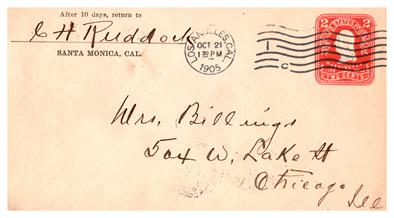 After 10 days, return to
C H Ruddock
SANTA MONICA, CAL.
LOS ANGELES, CAL.
OCT 21
1 30 PM
1905
1
C
2 2
TWO CENTS
Mrs. Billings
504 W. Lake St
Chicago
Ill